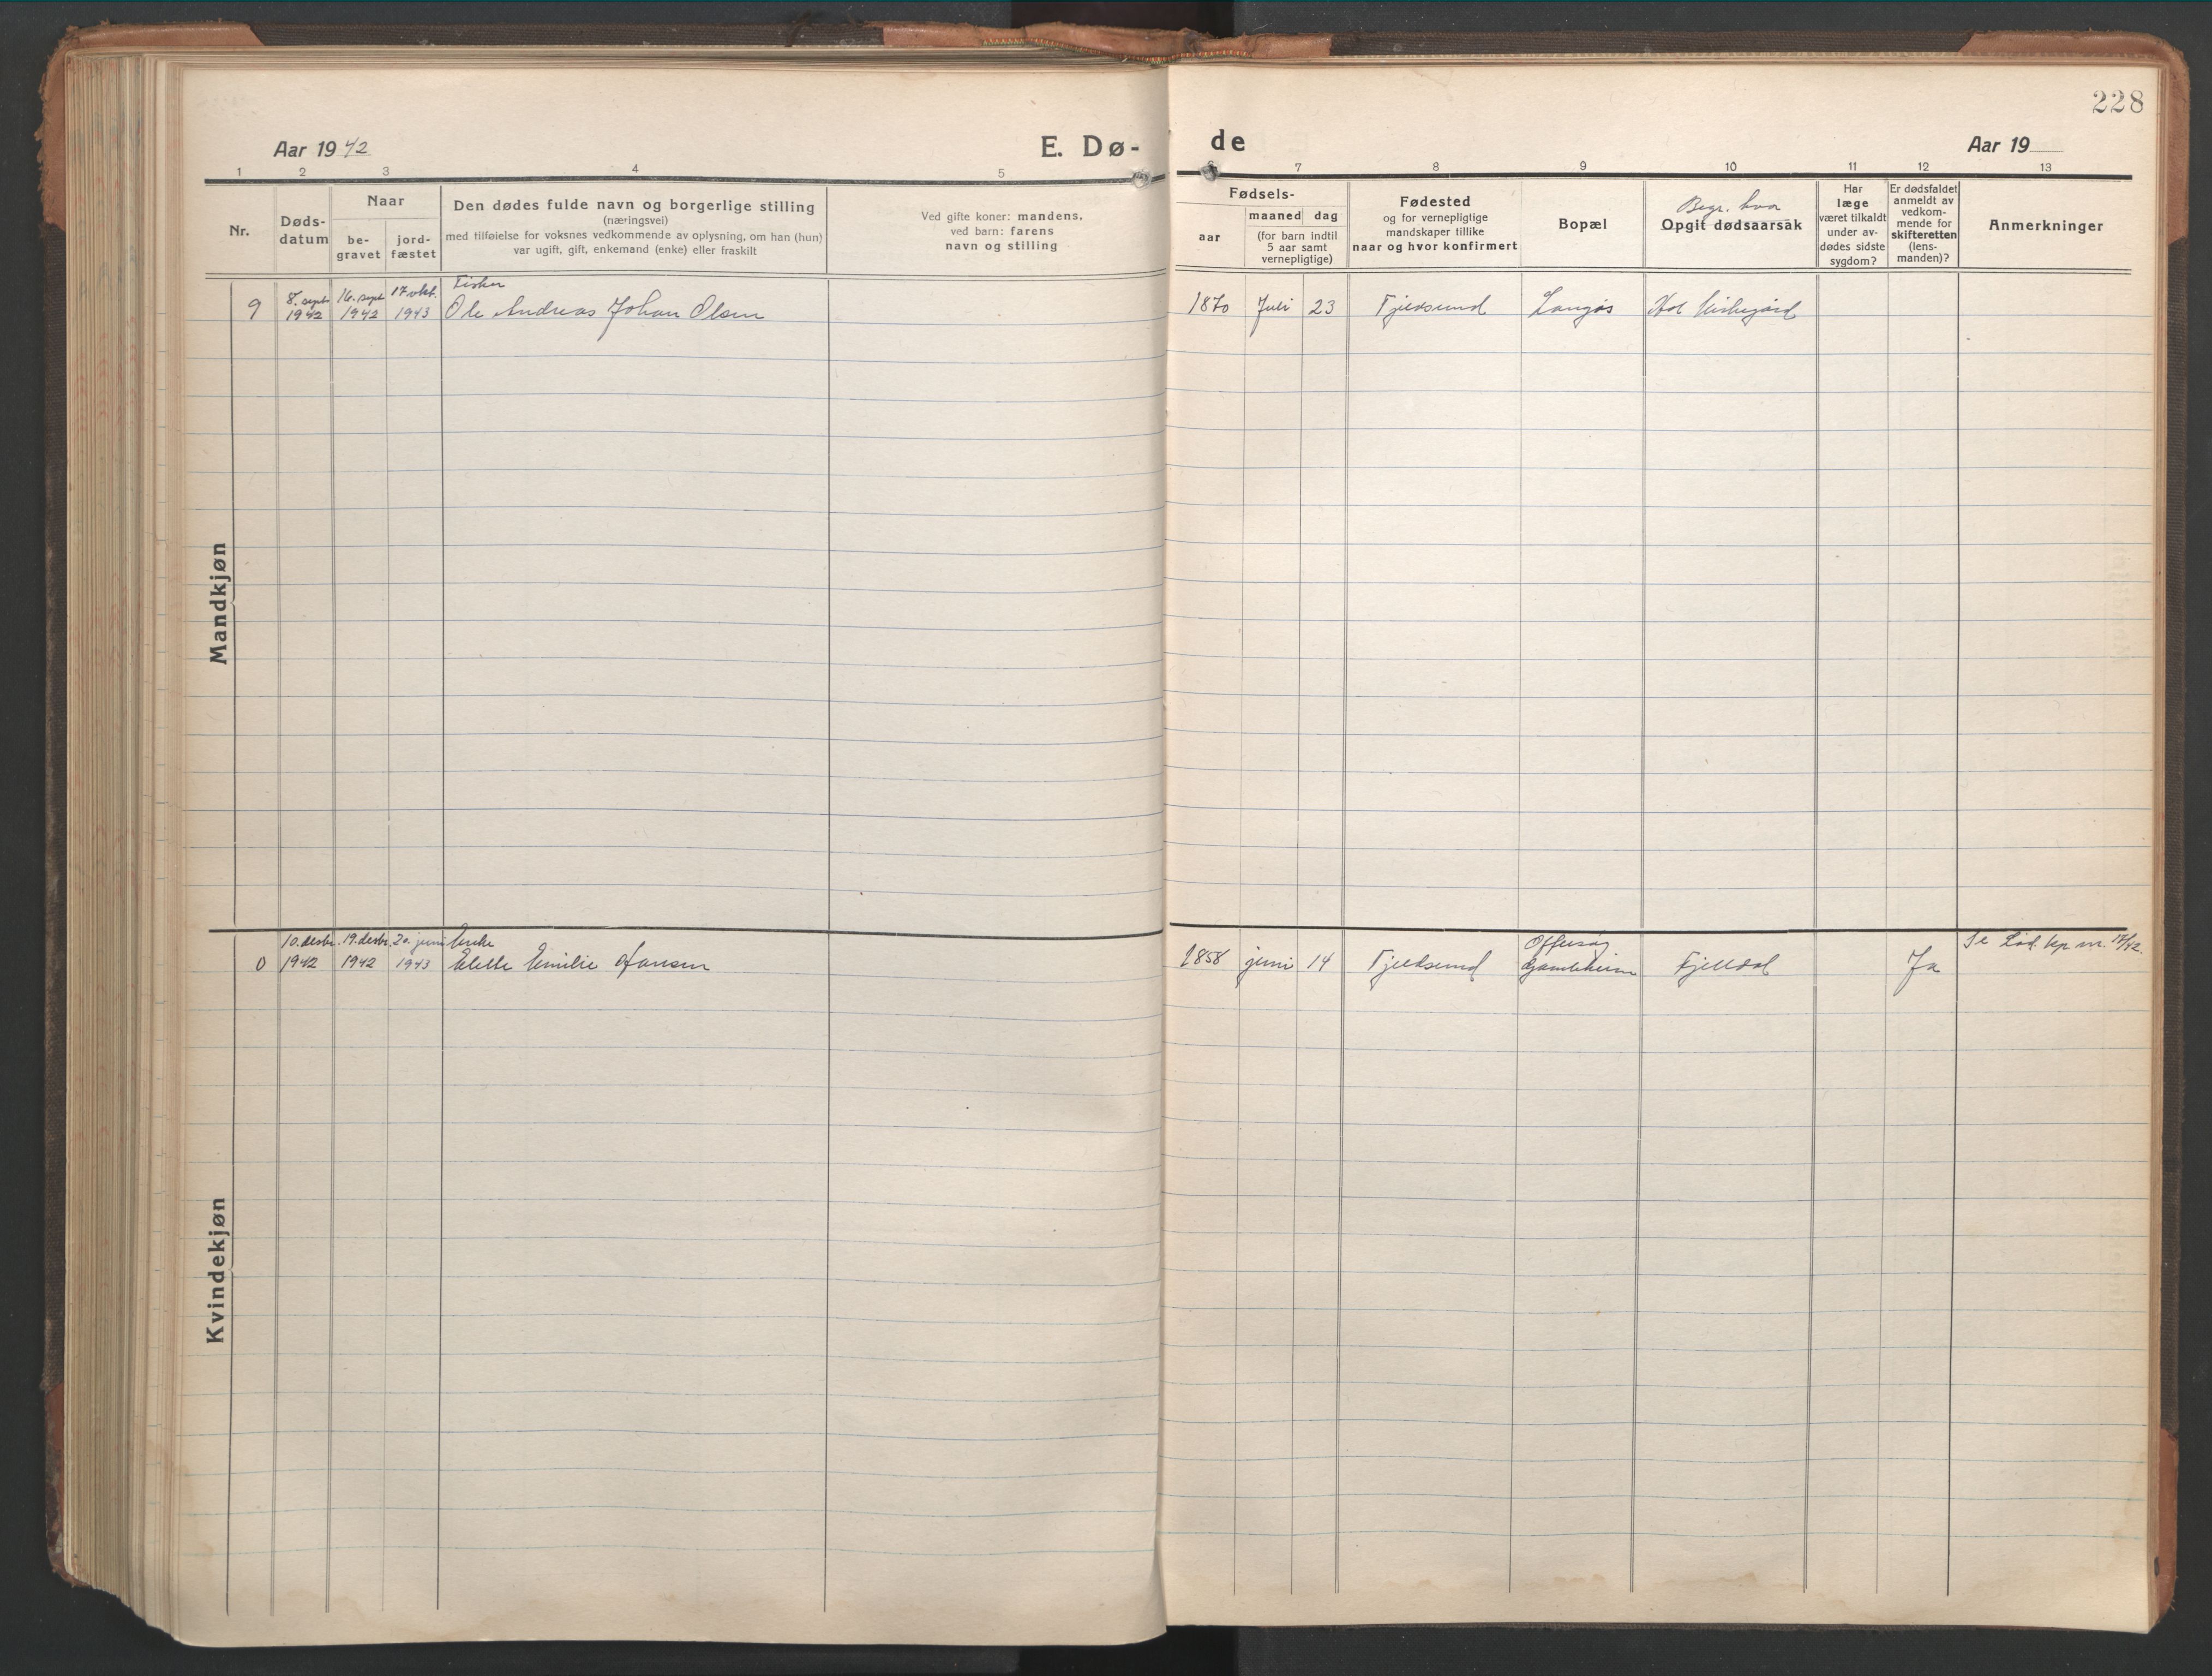 228
Aar 1942
E. Dø-
de
Aar 19
1 2 3 4 5 6 7 8 9 10 11 12 13
Nr.
Døds-
datum
Naar
be-
gravet
jord-
fæstet
Den dødes fulde navn og borgerlige stilling
(næringsvei)
med tilføielse for voksnes vedkommende av oplysning, om han (hun)
var ugift, gift, enkemand (enke) eller fraskilt
Ved gifte koner: mandens,
ved barn: farens
navn og stilling
Fødsels-
aar
maaned dag
(for barn indtil
5 aar samt
vernepligtige)
Fødested
og for vernepligtige
mandskaper tillike
naar og hvor konfirmert
Bopæl
Begr. hvor
Opgit dødsaarsak
Har
læge
været tilkaldt
under av-
dødes sidste
sygdom?
Er dødsfaldet
anmeldt av
vedkom-
mende for
skifteretten
(lens-
manden)?
Anmerkninger
Mandkjøn
8. sept 16. sept 17 okt. Fisker
9 1942 1942 1943 Ole Andreas Johan Olsen 1870 Juli 23 Fjeldsund Langås Hol kirkegård
Kvindekjøn
10. desbr. 19. desbr. 20. juni Enke Offersøy Se Lød. kp nr. 17/42.
0 1942 1942 1943 Elette Emilie Hansen 1858 juni 14 Fjeldsund Gamleheim Fjelldal Ja